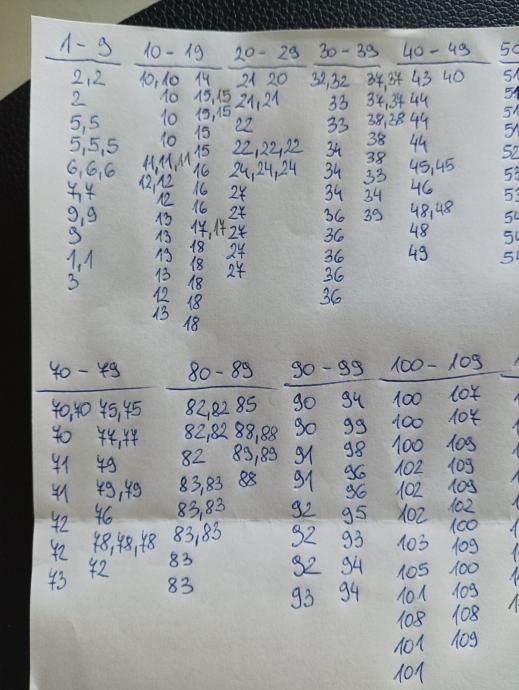 1 - 9 10 - 19 20 - 29 30 - 39 40 - 49
2,2 10,10 14 21 20 32,32 37,37 43 40 51
2 10 15,15 21,21 33 37,37 44 51
5,5 10 15,15 22 33 38,38 44 51
5,5,5 10 15 22,22,22 34 38 44 51
6,6,6 11,11,11 15 24,24,24 34 38 45,45 52
7,7 12,12 16 27 34 33 46 53
9,9 12 16 27 36 34 48,48 53
9 13 17,17 27 36 39 48 54
1,1 13 18 27 36 49 54
3 13 18 27 36 54
13 18 36
12 18
13 18
70 - 79 80 - 89 90 - 99 100 - 109
70,70 75,75 82,82 85 90 94 100 107
70 77,77 82,82 88,88 90 99 100 107
71 79 82 89,89 91 98 100 109
71 79,79 83,83 88 91 96 102 109
72 76 83,83 92 96 102 109
72 78,78,78 83,83 92 95 102 102
73 72 83 92 93 103 100
83 93 94 105 109
94 101 100
108 109
101 108
101 109